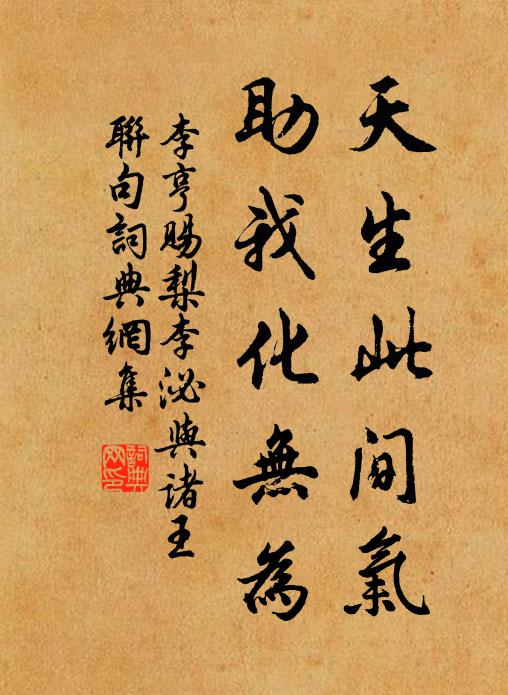 天生此間氣
助我化無為
李亨賜梨李泌與诸王
聯句詞典網集
詞典
网印